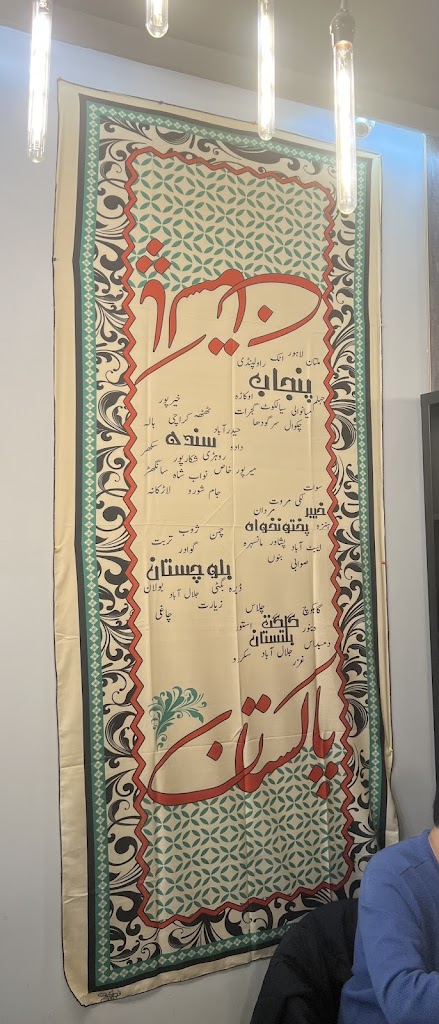 ملتان لاہور اٹک راولپنڈی
پنجاب
اوکاڑہ
جہلم میانوالی سیالکوٹ گجرات
چکوال سرگودھا
خیرپور
ٹھٹھہ کراچی ہالہ
حیدرآباد
سندھ
دادو سکھر
روہڑی شکارپور
میرپور خاص نواب شاہ سانگھڑ
جام شورو لاڑکانہ
سوات
لکی مروت
مردان
خیبر
پختونخواہ
ایبٹ آباد پشاور مانسہرہ
صوابی بنوں
چمن ژوب
گوادر تربت
بلوچستان
ڈیرہ بگٹی جلال آباد بولان
زیارت چاغی
گاہکوچ چلاس
گلگت
بلتستان
دنیور استور
جلال آباد سکردو
غذر
پاکستان